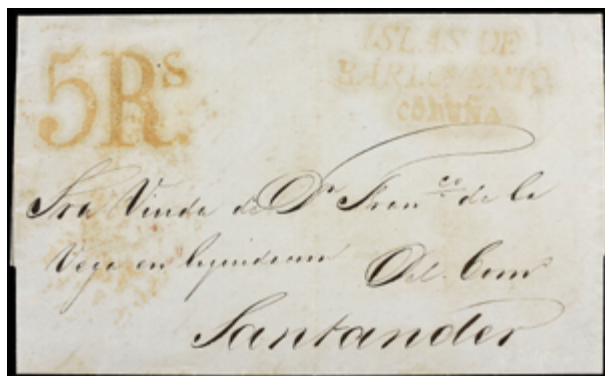 5 Rs
ISLAS DE
BARLOVENTO
CORUÑA
Sra Viuda de Dn Franco de la
Vega en liquidacion Del Comº
Santander